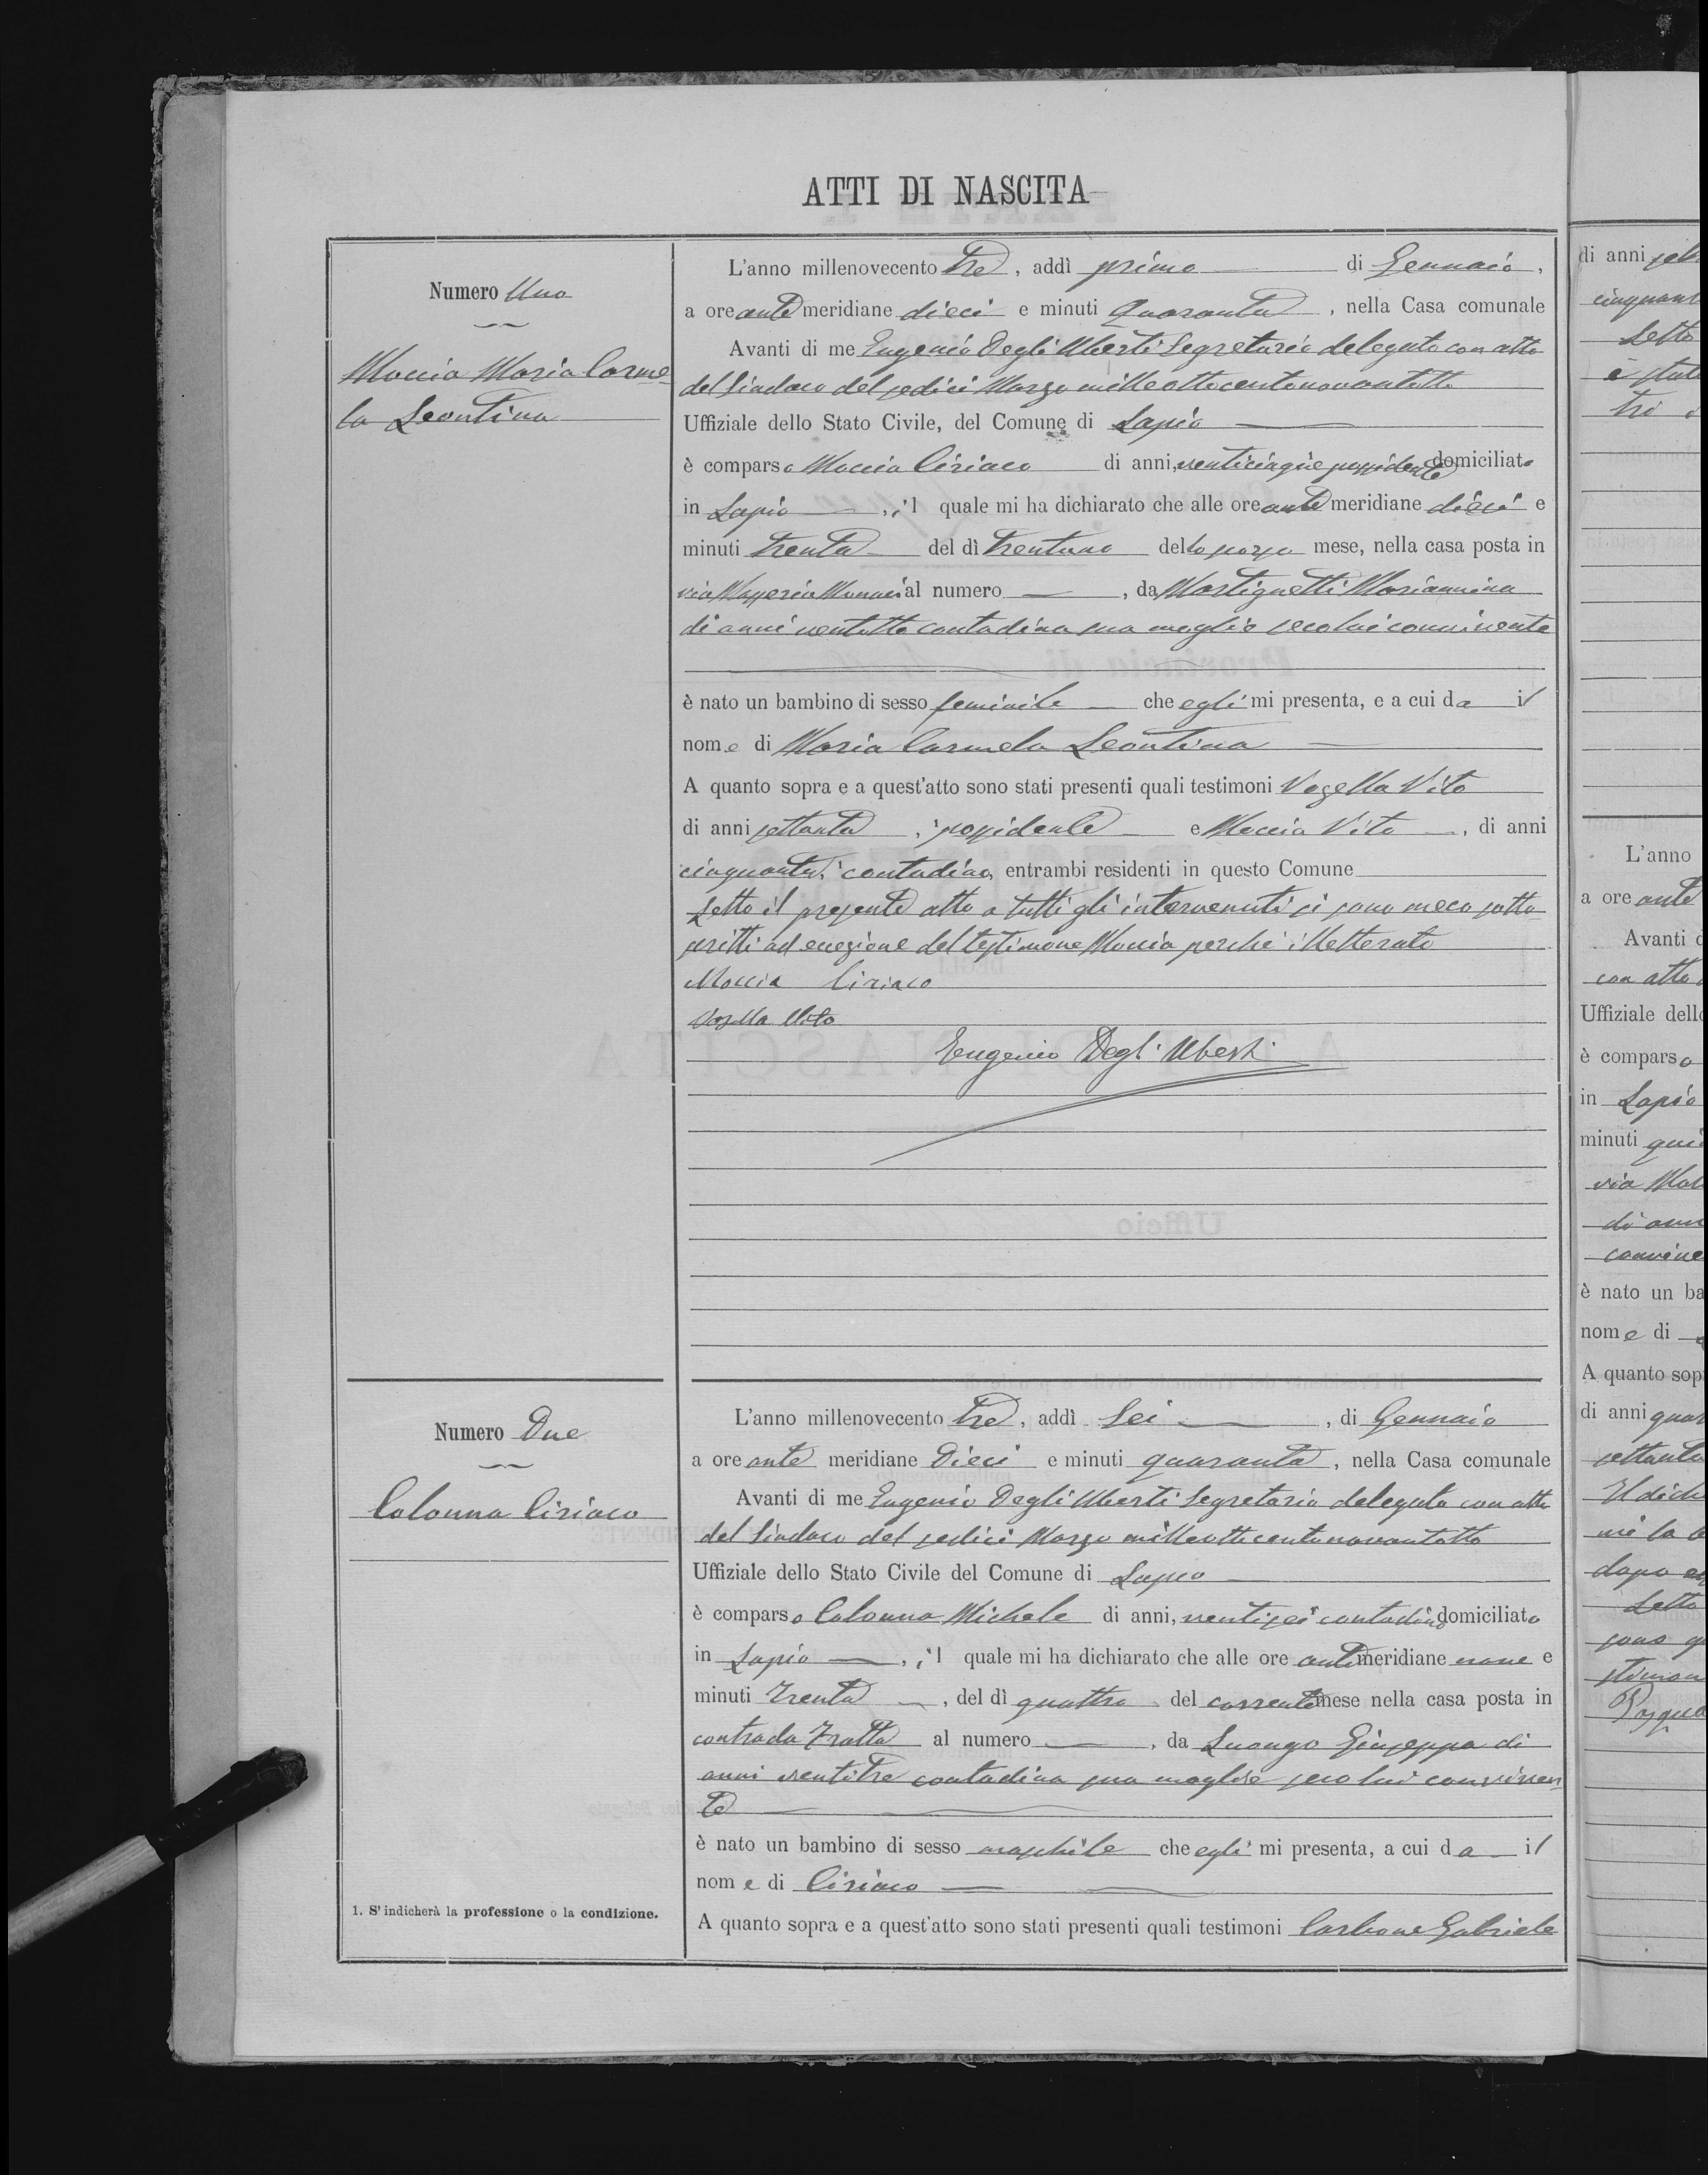 ATTI DI NASCITA
Numero Uno
Moccia Maria Carme-
la Leontina
L'anno millenovecento tre, addì primo di Gennaio,
a ore ante meridiane dieci e minuti quaranta, nella Casa comunale
Avanti di me Eugenio Degli Uberti Segretario delegato con atto
del Sindaco del sedici Marzo milleottocentonovantotto
Uffiziale dello Stato Civile, del Comune di Lapio
è comparso Moccia Ciriaco di anni, venticinque possidente domiciliato
in Lapio, il quale mi ha dichiarato che alle ore ante meridiane dieci e
minuti trenta del dì trentuno dello scorso mese, nella casa posta in
via al numero , da Mastignetti Mariannina
di anni ventotto contadina sua moglie secolui convivente
è nato un bambino di sesso feminile che egli mi presenta, e a cui da il
nome di Maria Carmela Leontina
A quanto sopra e a quest'atto sono stati presenti quali testimoni Vozella Vito
di anni settanta, possidente e Moccia Vito, di anni
cinquanta, contadino, entrambi residenti in questo Comune
Letto il presente atto a tutti gli intervenuti si sono meco sotto
scritti ad eccezione del testimone Moccia perchè illetterato
Moccia Ciriaco
Vozella Vito
Eugenio Degli Uberti
Numero Due
Colonna Ciriaco
L'anno millenovecento tre, addì sei, di Gennaio
a ore ante meridiane dieci e minuti quaranta, nella Casa comunale
Avanti di me Eugenio Degli Uberti Segretario delegato con atto
del Sindaco del sedici Marzo milleottocentonovantotto
Uffiziale dello Stato Civile del Comune di Lapio
è comparso Colonna Michele di anni, ventisei contadino domiciliato
in Lapio, il quale mi ha dichiarato che alle ore antimeridiane nove e
minuti trenta, del dì quattro del corrente mese nella casa posta in
contrada Tratta al numero , da Luongo Giuseppa di
anni ventitre contadina sua moglie seco lui conviven
te
è nato un bambino di sesso maschile che egli mi presenta, a cui da il
nome di Ciriaco
A quanto sopra e a quest'atto sono stati presenti quali testimoni Carbone Gabriele
1. S'indicherà la professione o la condizione.
di anni
cinquant
Letto
è stat
L'anno
a ore ante
Avanti d
con atto
Uffiziale dello
è comparso
in Lapio
minuti qui
via
di ann
convive
è nato un ba
nome di
A quanto sop
di anni quar
settanta
Il dich
dopo
Letto
sono
stimon
Pasqua